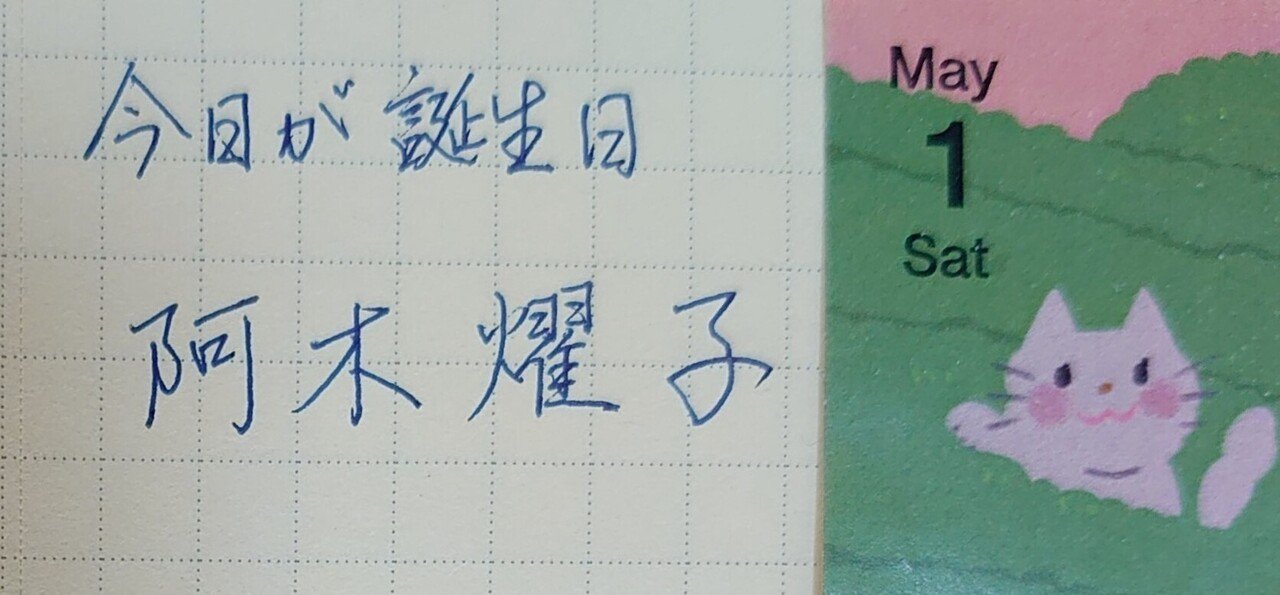 今日が誕生日
阿木燿子
May
1
Sat